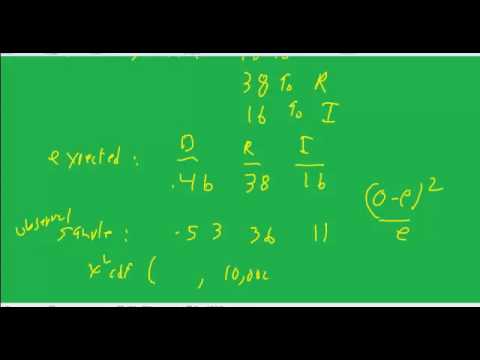 38 % R
16 % I
D R I
expected : .46 38 16
(o-e)²
e
observed
sample : .53 36 11
x²cdf ( , 10,000